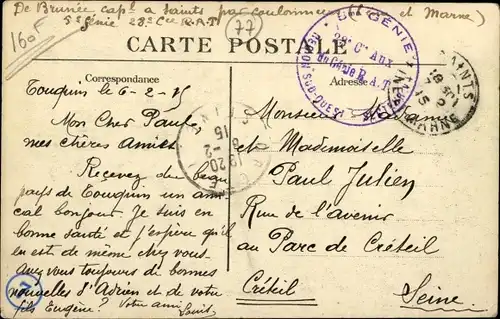 De Brunée cap^l à Saints par Coulommiers et Marne)
5^e Génie 28^e Cie R.A.T
160f
77
CARTE POSTALE
Correspondance
Adresse
5^e GÉNIE
28^e C^ie Aux
du Génie R.A.T
SAINTS
MARNE
Touquin le 6-2-15
Mon Cher Paul
mes chères Amies
Recevez du beau
pays de Touquin un ami
cal bonjour. Je suis en
bonne santé et j'espère qu'il
en est de même chez vous.
Avez vous toujours de bonnes
nouvelles d'Adrien et de votre
fils Eugène? Votre ami
Louis
Monsieur Madame
et Mademoiselle
Paul Julien
Rue de l'avenir
au Parc de Créteil
Créteil
Seine.